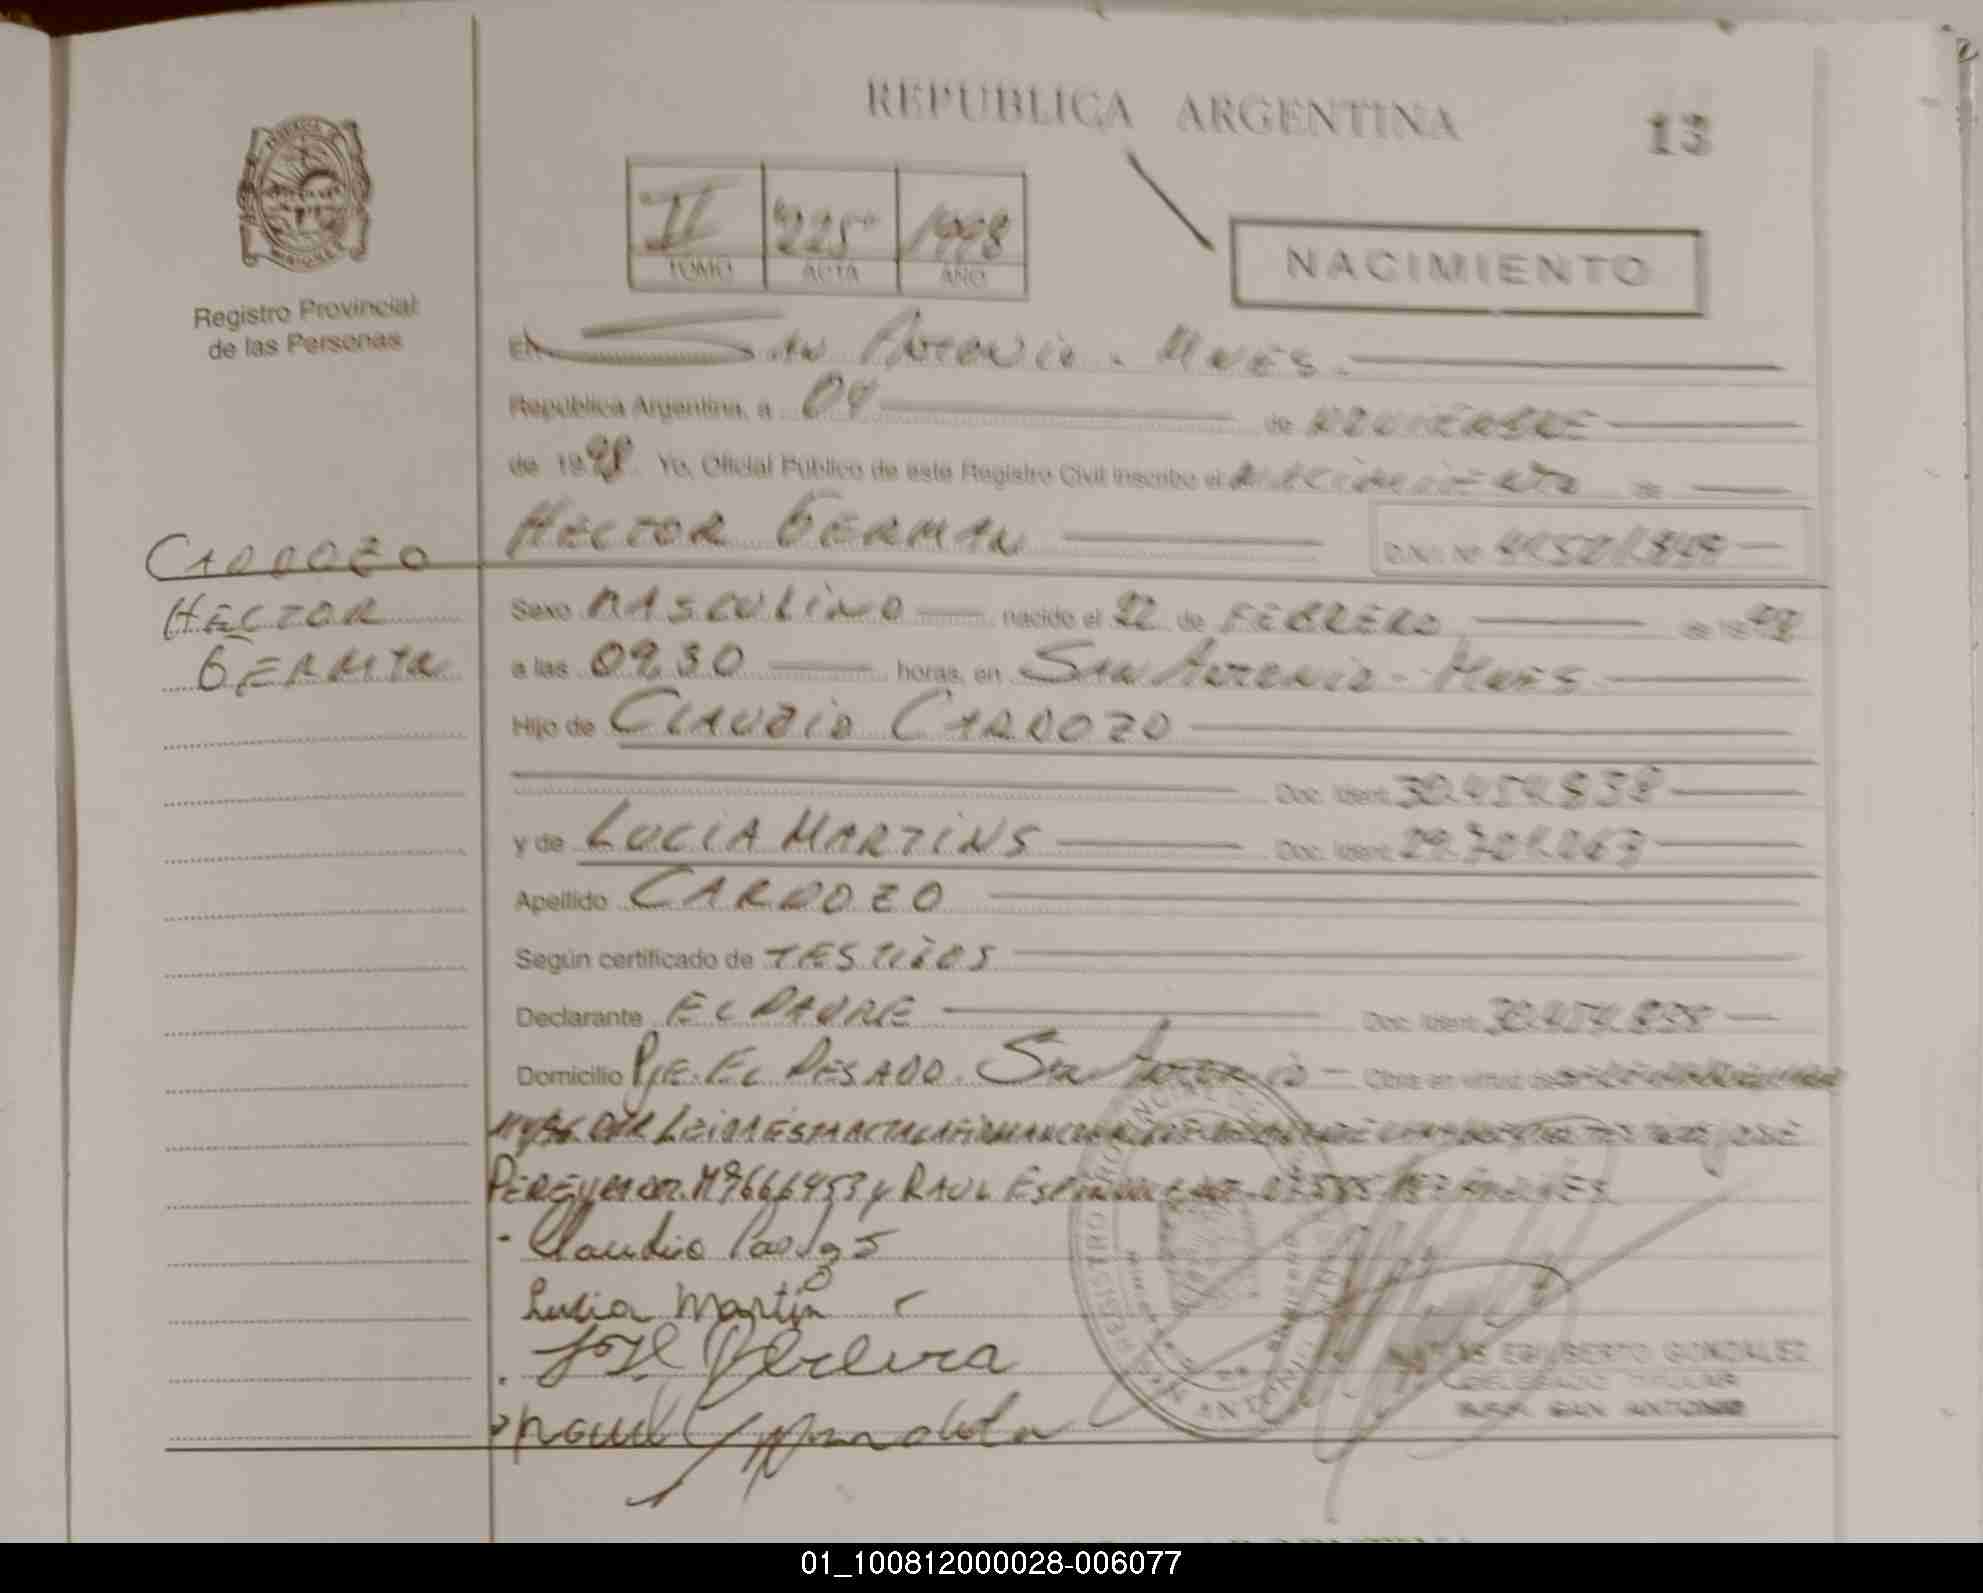 REPUBLICA ARGENTINA
13
II "225" 1998
TOMO ACTA AÑO
NACIMIENTO
Registro Provincial
de las Personas
En San Antonio - Mnes.
República Argentina, a 04 de NOVIEMBRE
de 1998 Yo, Oficial Público de este Registro Civil inscribo el NACIMIENTO de
HECTOR GERMAN D.N.I. Nº
CARDOZO
HECTOR
GERMAN
Sexo MASCULINO nacido el 22 de FEBRERO de 19
a las 09,30 horas, en San Antonio - Mnes
Hijo de CLAUDIO CARDOZO
Doc. Ident. 30.454.838
y de LUCIA MARTINS Doc. Ident. 29.701.263
Apellido CARDOZO
Según certificado de TESTIGOS
Declarante EL PADRE Doc. Ident. 30.454.838
Domicilio PJE. EL PESADO. San Antonio - Obra en virtud de
LEIDA ESTA ACTA LA FIRMAN JOSE
PEREYRA M9666453 y RAUL
Claudio Cardozo
Lucia Martin
José Pereira
Raul
EGUBERTO GONZALEZ
DELEGADO TITULAR
SAN ANTONIO
01_100812000028-006077